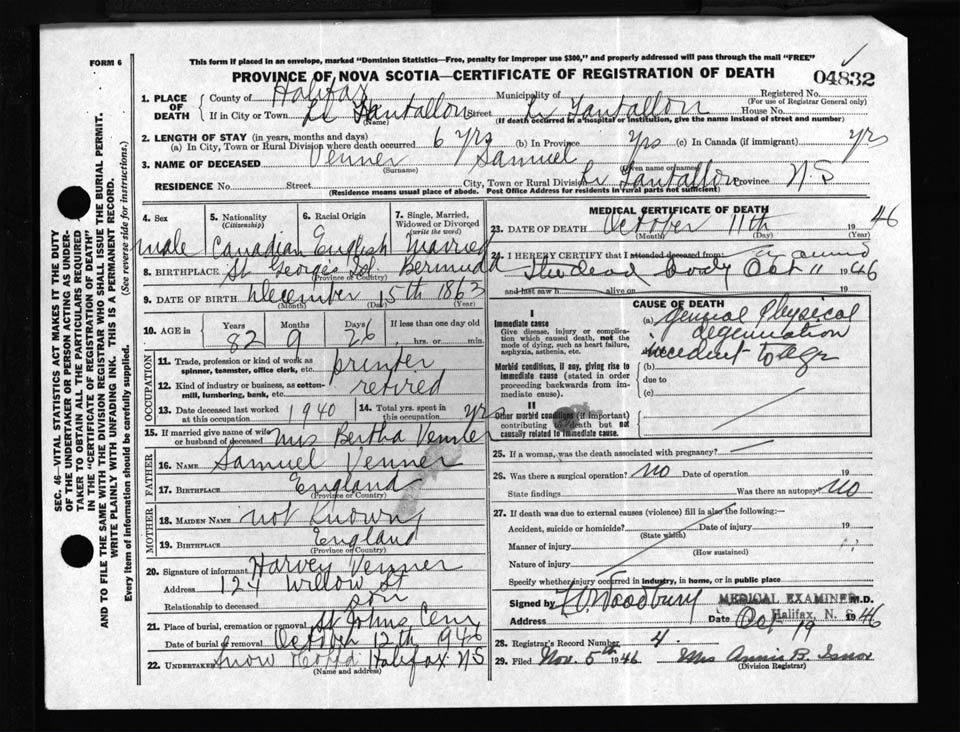 FORM 6
This form if placed in an envelope, marked "Dominion Statistics—Free, penalty for improper use $300," and properly addressed will pass through the mail "FREE"
PROVINCE OF NOVA SCOTIA—CERTIFICATE OF REGISTRATION OF DEATH
04832
SEC. 46—VITAL STATISTICS ACT MAKES IT THE DUTY
OF THE UNDERTAKER OR PERSON ACTING AS UNDER-
TAKER TO OBTAIN ALL THE PARTICULARS REQUIRED
IN THE "CERTIFICATE OF REGISTRATION OF DEATH"
AND TO FILE THE SAME WITH THE DIVISION REGISTRAR WHO SHALL ISSUE THE BURIAL PERMIT.
WRITE PLAINLY WITH UNFADING INK. THIS IS A PERMANENT RECORD.
Every item of information should be carefully supplied. (See reverse side for instructions.)
1. PLACE OF DEATH
County of Halifax Municipality of Registered No.
(For use of Registrar General only)
If in City or Town Tantallon Street Tantallon House No.
(Name) (If death occurred in a hospital or institution, give the name instead of street and number)
2. LENGTH OF STAY (in years, months and days)
(a) In City, Town or Rural Division where death occurred 6 yrs (b) In Province yrs (c) In Canada (if immigrant) yrs
3. NAME OF DECEASED Venner Samuel
(Surname) (Given name or names)
RESIDENCE No. Street City, Town or Rural Division Tantallon Province N S
(Residence means usual place of abode. Post Office Address for residents in rural parts not sufficient)
4. Sex male
5. Nationality (Citizenship) Canadian
6. Racial Origin English
7. Single, Married, Widowed or Divorced (write the word) Married
8. BIRTHPLACE St Georges Isl. Bermuda
(Province or Country)
9. DATE OF BIRTH December 15th 1863
(Month) (Day) (Year)
10. AGE in Years 82 Months 9 Days 26 If less than one day old
hrs. or min.
OCCUPATION
11. Trade, profession or kind of work as spinner, teamster, office clerk, etc. printer
12. Kind of industry or business, as cotton-mill, lumbering, bank, etc. retired
13. Date deceased last worked at this occupation 1940 14. Total yrs. spent in this occupation yrs
15. If married give name of wife or husband of deceased Mrs Bertha Venner
FATHER
16. NAME Samuel Venner
17. BIRTHPLACE England
(Province or Country)
MOTHER
18. MAIDEN NAME not known
19. BIRTHPLACE England
(Province or Country)
20. Signature of informant Harvey Venner
Address 124 Willow St
Relationship to deceased son
21. Place of burial, cremation or removal St Johns Cem
Date of burial or removal October 12th 1946
22. UNDERTAKER Snow Halifax N S
(Name and address)
MEDICAL CERTIFICATE OF DEATH
23. DATE OF DEATH October 11th 46
(Month) (Day) (Year)
24. I HEREBY CERTIFY that I attended deceased from:
the dead body Oct 11 1946
and last saw h alive on 19
CAUSE OF DEATH
I
Immediate cause
Give disease, injury or complication which caused death, not the mode of dying, such as heart failure, asphyxia, asthenia, etc.
(a) General Physical
degeneration
incident to age
Morbid conditions, if any, giving rise to immediate cause (stated in order proceeding backwards from immediate cause).
(b)
due to
(c)
II
Other morbid conditions (if important) contributing to death but not causally related to immediate cause.
25. If a woman, was the death associated with pregnancy?
26. Was there a surgical operation? no Date of operation 19
State findings Was there an autopsy? no
27. If death was due to external causes (violence) fill in also the following:—
Accident, suicide or homicide? Date of injury 19
(State which)
Manner of injury
(How sustained)
Nature of injury
Specify whether injury occurred in industry, in home, or in public place
Signed by Woodbury MEDICAL EXAMINER M.D.
Halifax, N. S.
Address Date Oct 19 1946
28. Registrar's Record Number 4.
29. Filed Nov. 5th 1946 Mrs Annie B. Isnor
(Division Registrar)